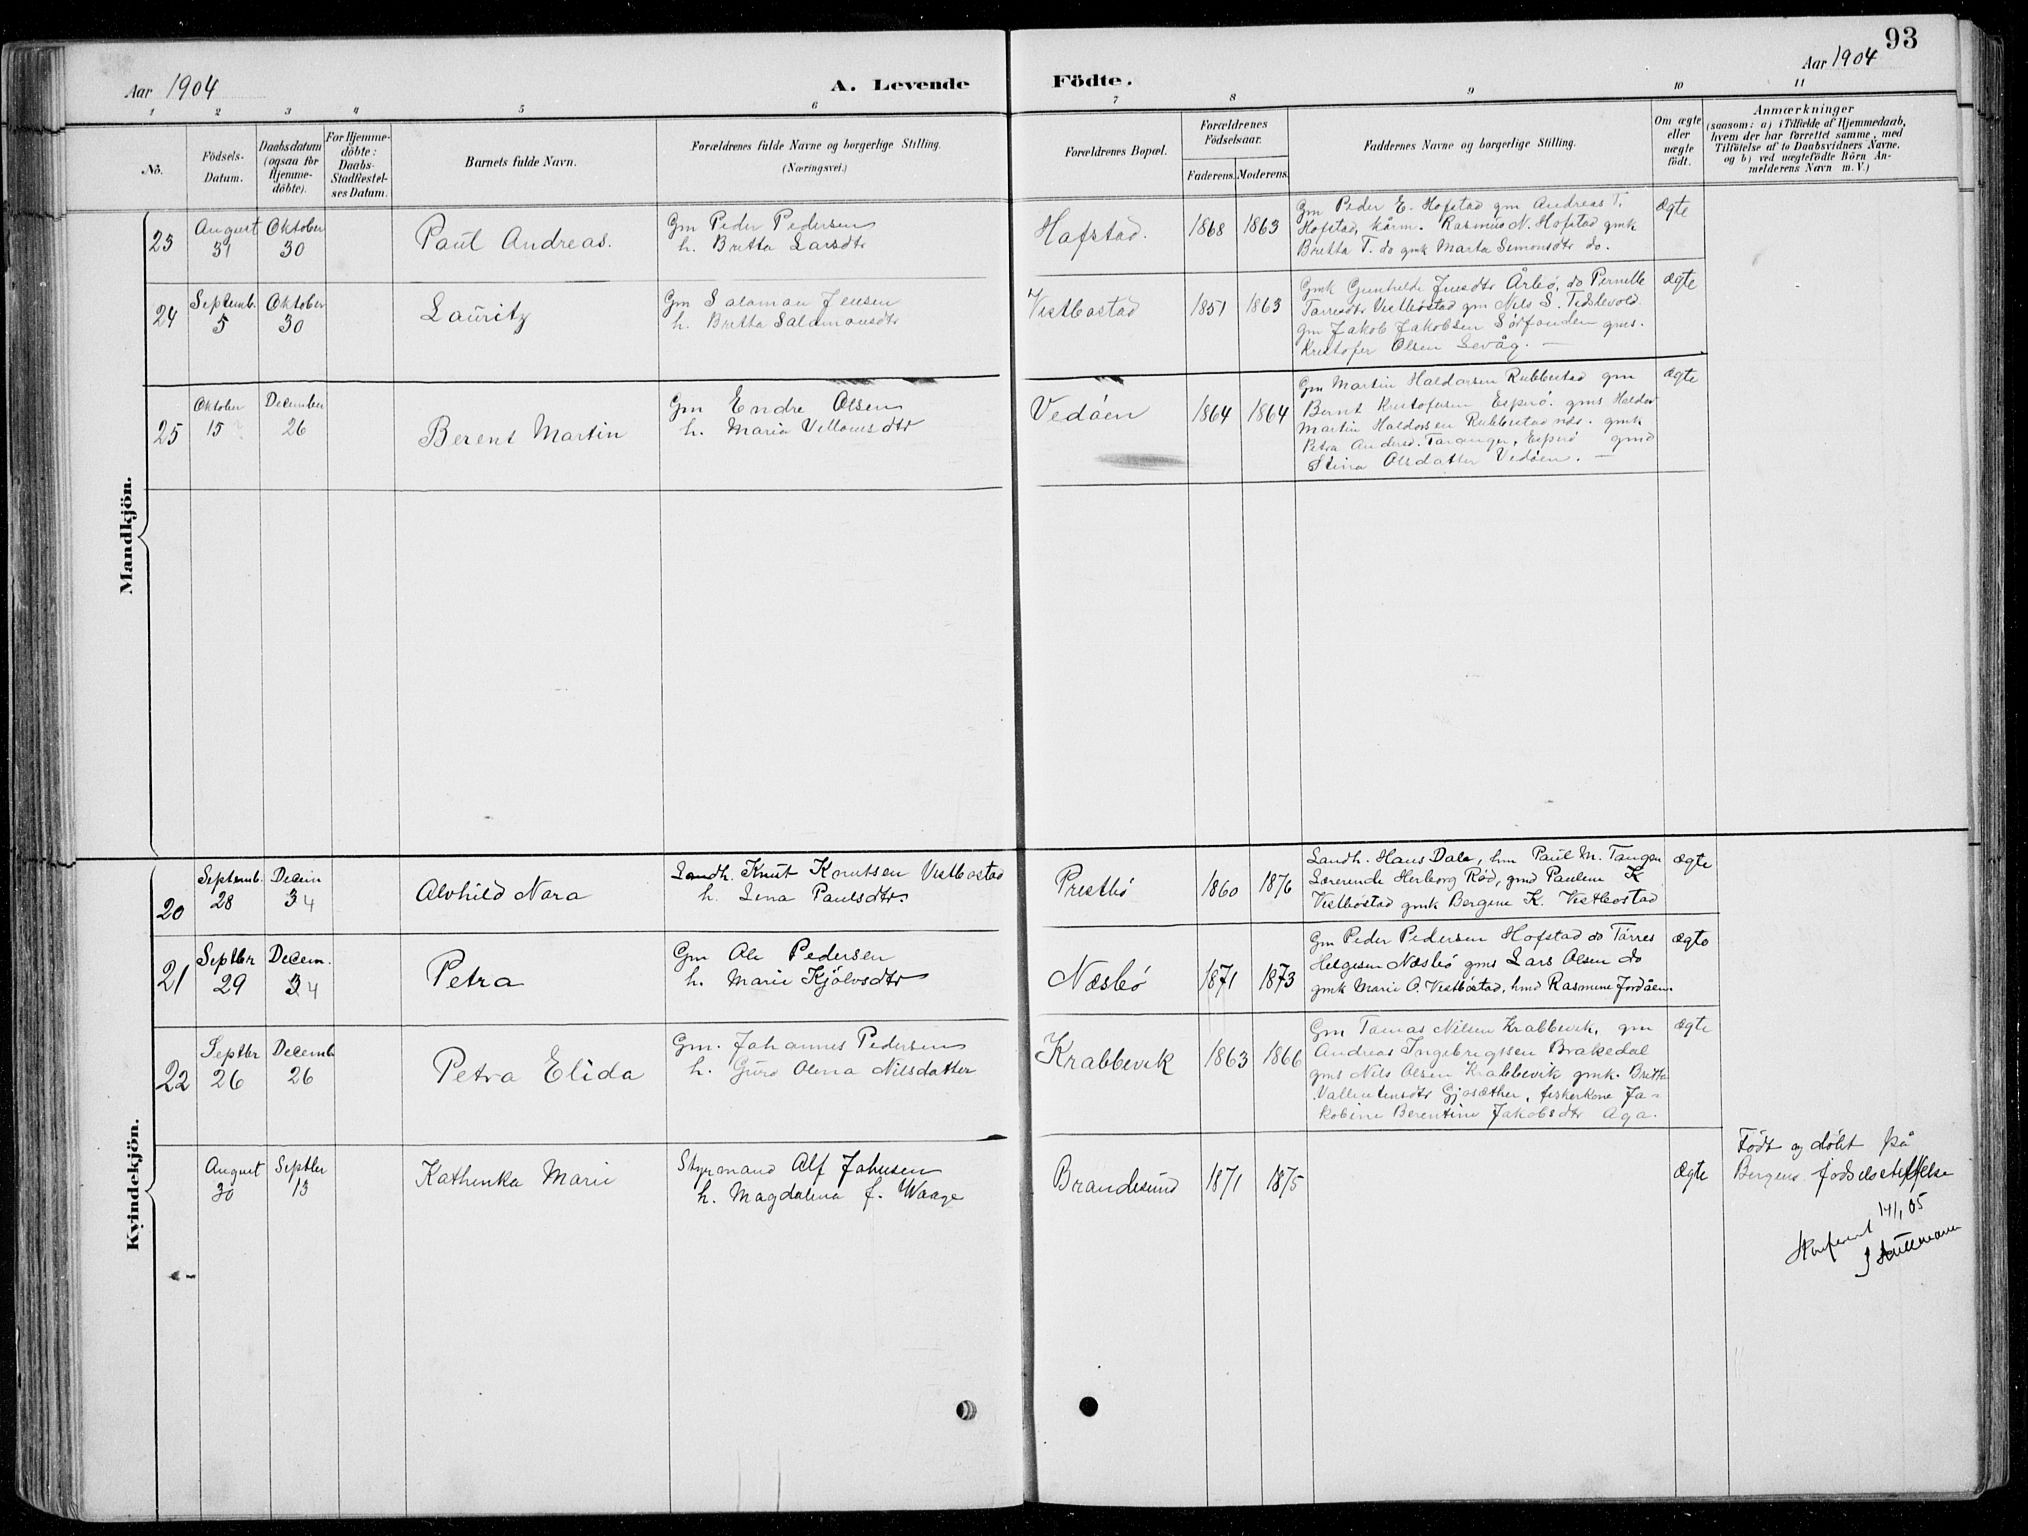 93
Aar 1904
A. Levende Födte.
Aar 1904
1 2 3 4 5 6 7 8 9 10 11
No.
Födsels-Datum.
Daabsdatum (ogsaa for Hjemme-döbte).
For Hjemme-döbte: Daabs-Stadfæstel-ses Datum.
Barnets fulde Navn.
Forældrenes fulde Navne og borgerlige Stilling.
(Næringsvei.)
Forældrenes Bopæl.
Forældrenes Födselsaar.
Faderens. Moderens.
Faddernes Navne og borgerlige Stilling.
Om ægte eller uægte födt.
Anmærkninger
(saasom: a) i Tilfælde af Hjemmedaab,
hvem der har forrettet samme, med
Tilföielse af to Daabsvidners Navne.
og b) ved uægtefödte Börn An-
melderens Navn m. V.)
Mandkjön.
23 August 31 Oktober 30
Paul Andreas.
Gm Peder Pedersen
h. Britta Larsdtr
Hafstad. 1868 1863
Gm Peder E. Hofstad gm Andreas T.
Hofstad, kårm. Rasmus N. Hofstad gmk
Britta T. do gmk Marta Simonsdtr do.
Ægte
24 Septemb. 5 Oktober 30
Lauritz
Gm Salamon Jensen
h. Britta Salamonsdtr
Vestbostad 1851 1863
Gmk Gunhilde Jensdtr Årbø, do Pernille
Tarresdtr Vestbøstad gm Nils S. Tislevold
gm Jakob Jakobsen Sørfonden gms.
Kristofer Olsen Sevåg. —
Ægte
25 Oktober 15 December 26
Berent Martin
Gm Endre Olsen
h. Maria Villomsdtr
Vedøen 1864 1864
Gm Martin Haldorsen Rubbestad gm
Bernt Kristofersen Esperø. gms Haldor
Martin Haldorsen Rubbestadnds. gmk
Petra Andersd. Taranger, Esperø gmd
Stina Olsdatter Vedøen. —
Ægte
Kvindekjön.
20 Septemb. 28 Decem 4
Alvhild Nora
Landh. Knut Knutsen Vestbostad
h. Lina Paulsdtr.
Prestbø 1860 1876
Landh. Hans Dale, hm Paul M. Tangen
Lærerinde Herborg Rød, gmd Pauline K
Vestbøstad gmk Bergine K. Vestbostad
Ægte
21 Septbr 29 Decem. 4
Petra
Gm Ole Pedersen
h. Marie Kjölvsdtr
Næsbø 1871 1873
Gm Peder Pedersen Hofstad do Tørres
Helgesen Næsbø gms Lars Olsen do
gmk Marie O. Vestbøstad, hmd Rasmine Jordåen.
Ægte
22 Septbr 26 Decemb 26
Petra Elida
Gm. Johannes Pedersen
h. Guro Olena Nilsdatter
Krabbevik 1863 1866
Gm Tomas Nilsen Krabbevik, gm
Andreas Ingebrigtsen Brakedal
gms Nils Olsen Krabbevik gmk. Britta
Vallentinsdtr Gjøsæther, fiskerkone Ja-
kobine Berentine Jakobsdtr Aga.
Ægte
August 30 Septbr 13
Kathinka Marie
Styrmand Alf Johnsen
h. Magdalena f. Waage
Brandesund 1871 1875
Ægte
Født og døbt på
Bergens fødselsstiftelse
14/1 05